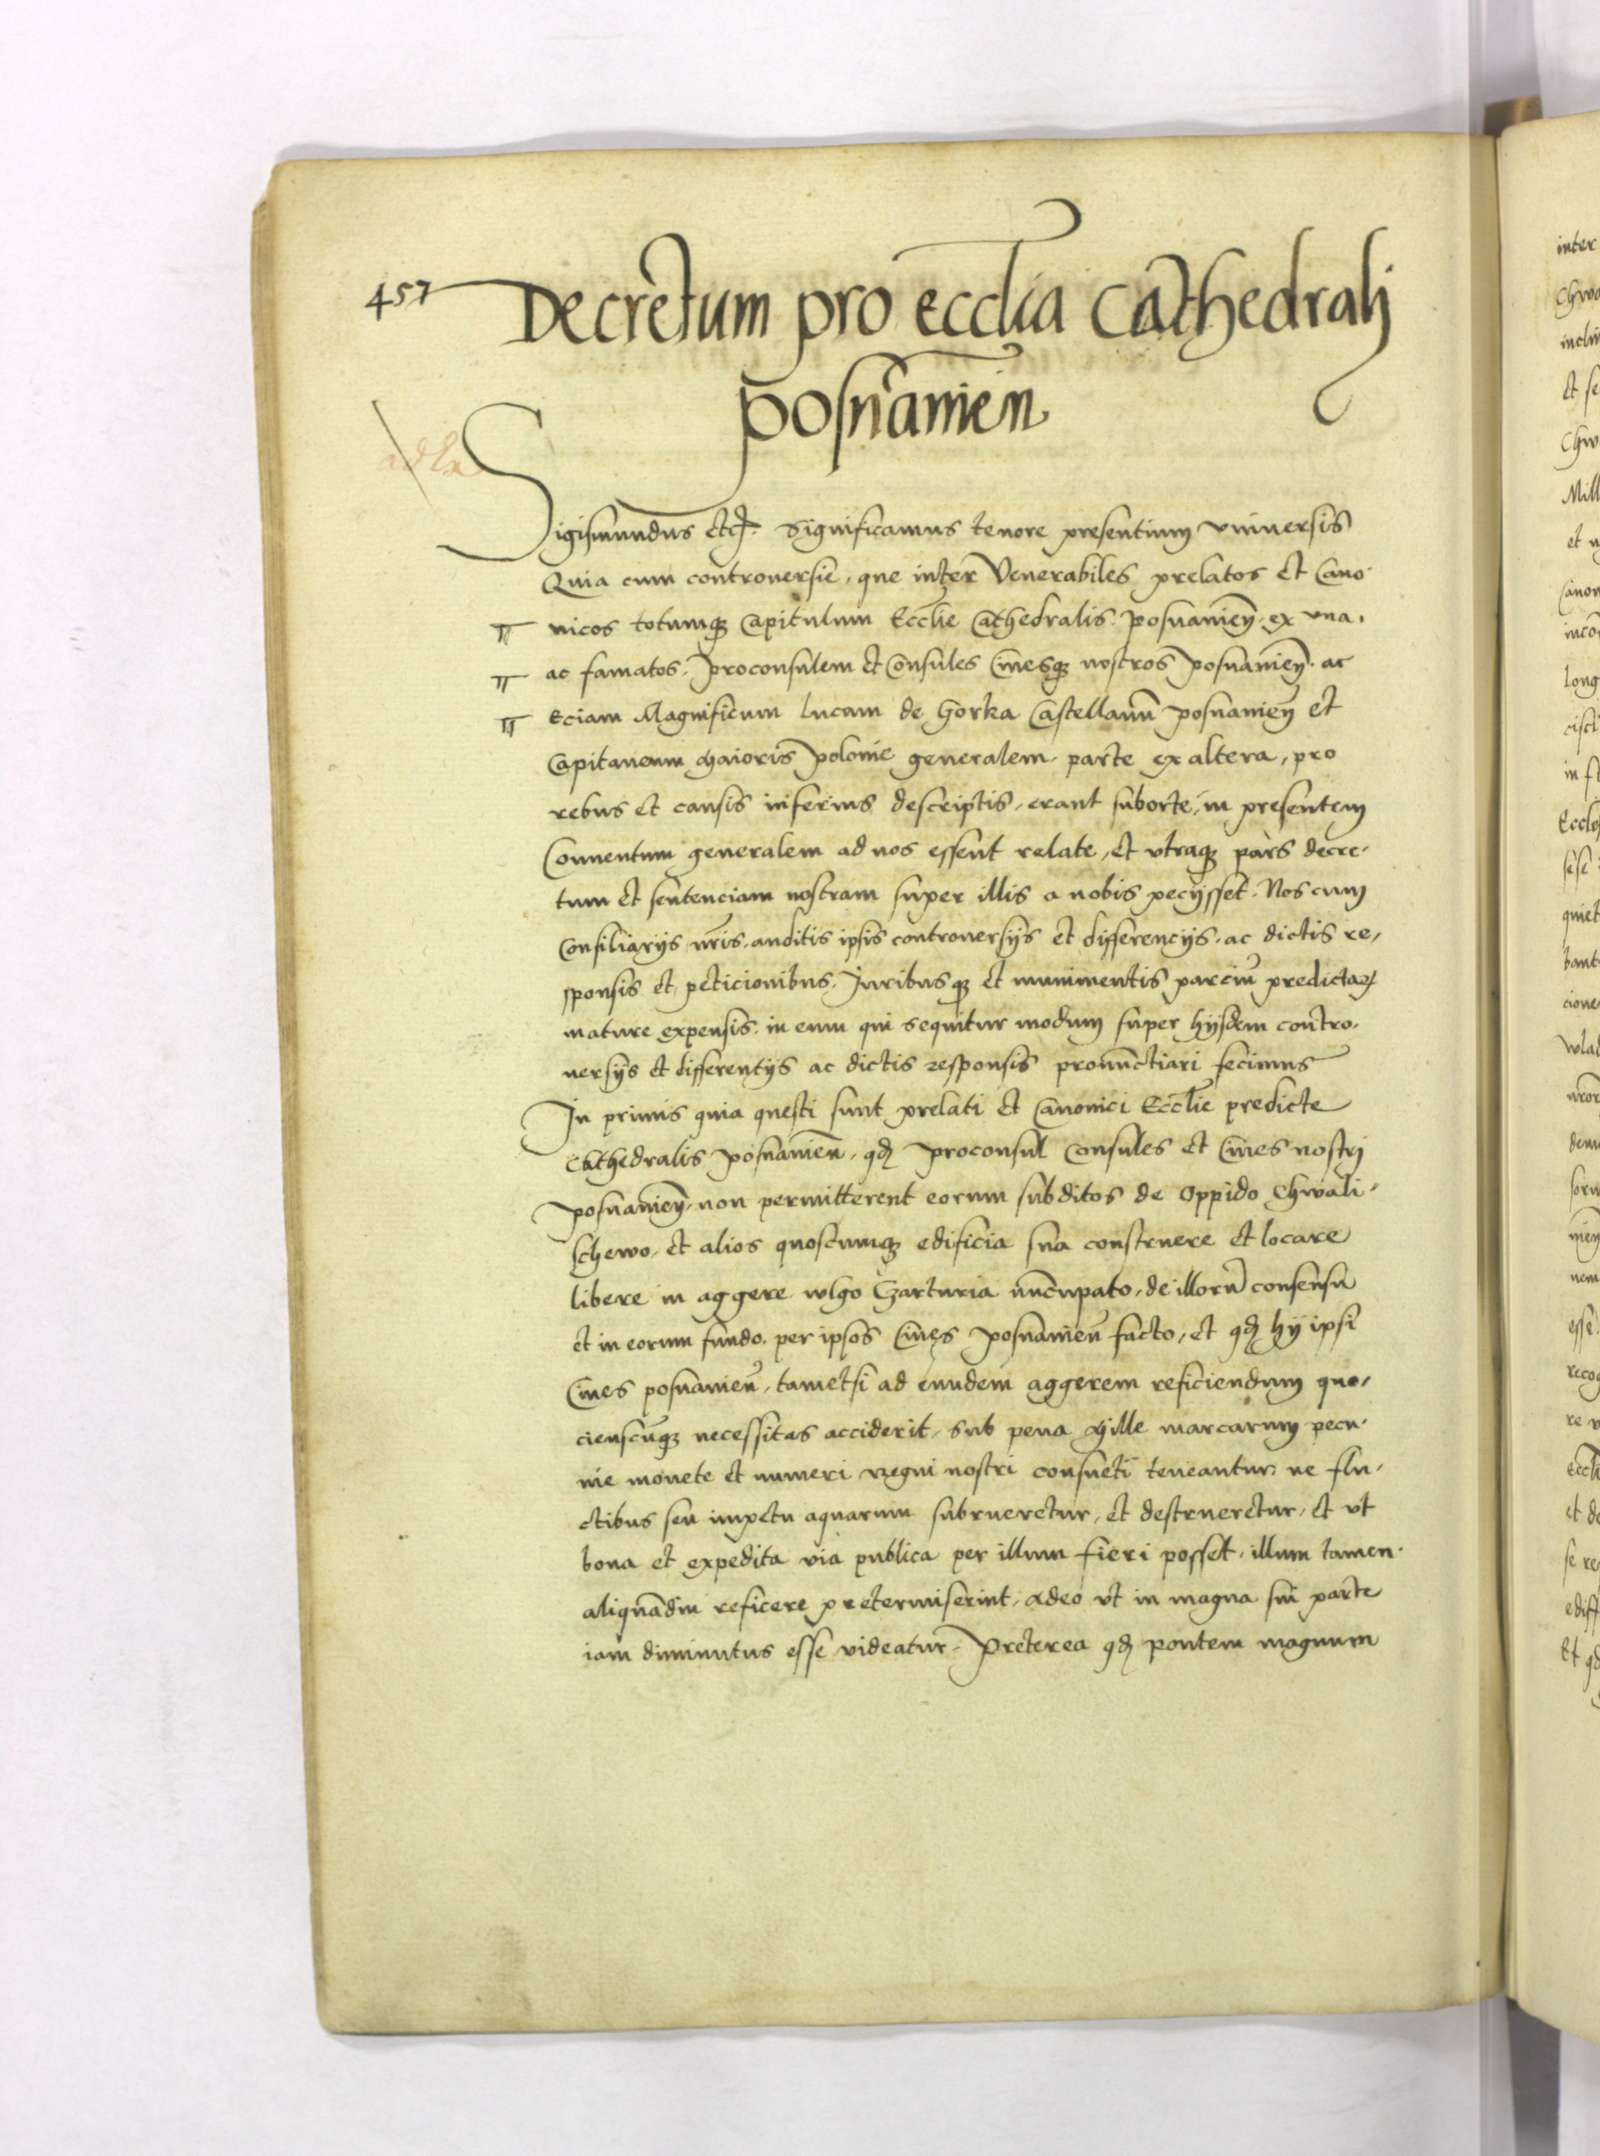 457
Decretum pro ecclīa Cathedralj
posnanień
Sigismundus etc. Significamus tenore presentium vniuersis
Quia cum controuersie, que inter Venerabiles prelatos et Cano-
nicos totumqȝ Capitulum Eccłie Cathedralis posnanień, ex vna,
ac famatos, proconsulem et Consules Ciuesqȝ nostros posnanień, ac
Eciam Magnificum lucam de Gorka Castellanū posnanień et
Capitaneum Maioris polonie generalem, parte ex altera, pro
rebus et causis inferius descriptis, erant suborte, in presentem
Conuentum generalem ad nos essent relate, et vtraqȝ pars decre-
tum et sentenciam nostram super illis a nobis pecijsset. Nos cum
Consiliarijs nr̄is, auditis ipsis controuersijs et differencijs, ac dictis re-
sponsis et peticionibus, Juribusqȝ et munimentis parciū predictaꝝ
mature expensis, in eum qui sequitur modum super hijsdem contro-
uersijs et differentijs ac dictis responsis pronunctiari fecimus
In primis quia questi sunt prelati et Canonici Eccłie predicte
Cathedralis posnanień, qđ proconsul Consules et Ciues nostrj
posnanień, non permitterent eorum subditos de oppido Chwali-
schewo, et alios quoscumqȝ edificia sua construere et locare
libere in aggere wlgo Czarturia nūcupato, de illorū consensu
et in eorum fundo, per ipsos Ciues posnanień facto, et qđ hij ipsi
Ciues posnanień, tametsi ad eundem aggerem reficiendum quo-
cienscūqȝ necessitas acciderit, sub pena Mille marcarum pecu-
nie monete et numeri Regni nostri consueti teneantur, ne flu-
ctibus seu impetu aquarum subrueretur, et destrueretur, et vt
bona et expedita via publica per illum fieri posset, illum tamen
aliquādiu reficere pretermiserint, adeo vt in magna sui parte
iam diminutus esse videatur. Preterea qđ pontem magnum